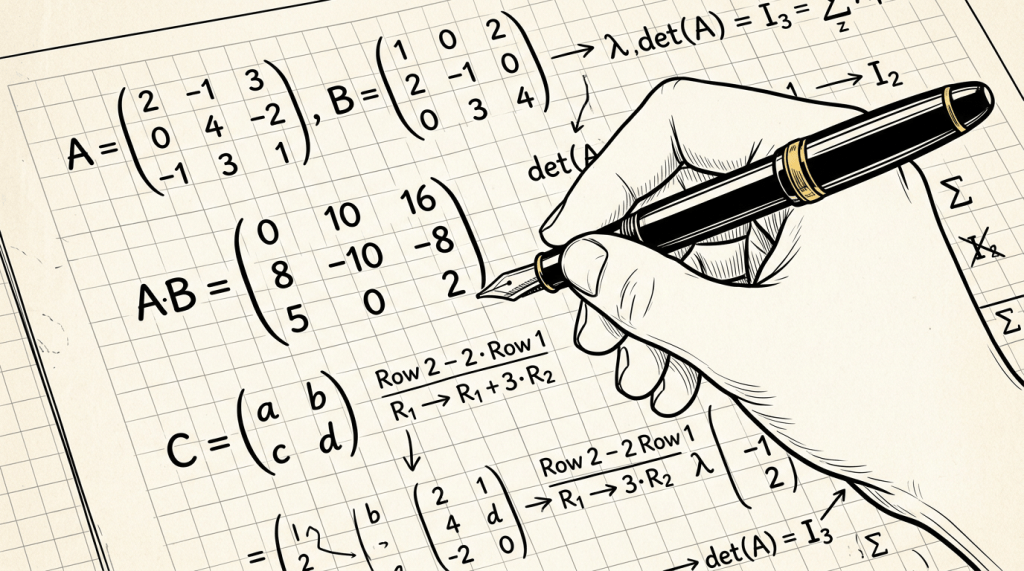 A = ( 2 -1 3 ; 0 4 -2 ; -1 3 1 ), B = ( 1 0 2 ; 2 -1 0 ; 0 3 4 ) → λ, det(A) = I₃ = Σ z
1 → I₂
det(A
A·B = ( 0 10 16 ; 8 -10 -8 ; 5 0 2 )
Σ
Σ
Row 2 - 2 · Row 1
R₁ → R₁ + 3·R₂
C = ( a b ; c d )
Row 2 - 2 Row 1
R₁ → 3·R₂
λ ( -1 ; 2 )
= ( 2 ( b ( 2 1 ; 4 d ; -2 0 ) →
→ det(A) = I₃
Σ